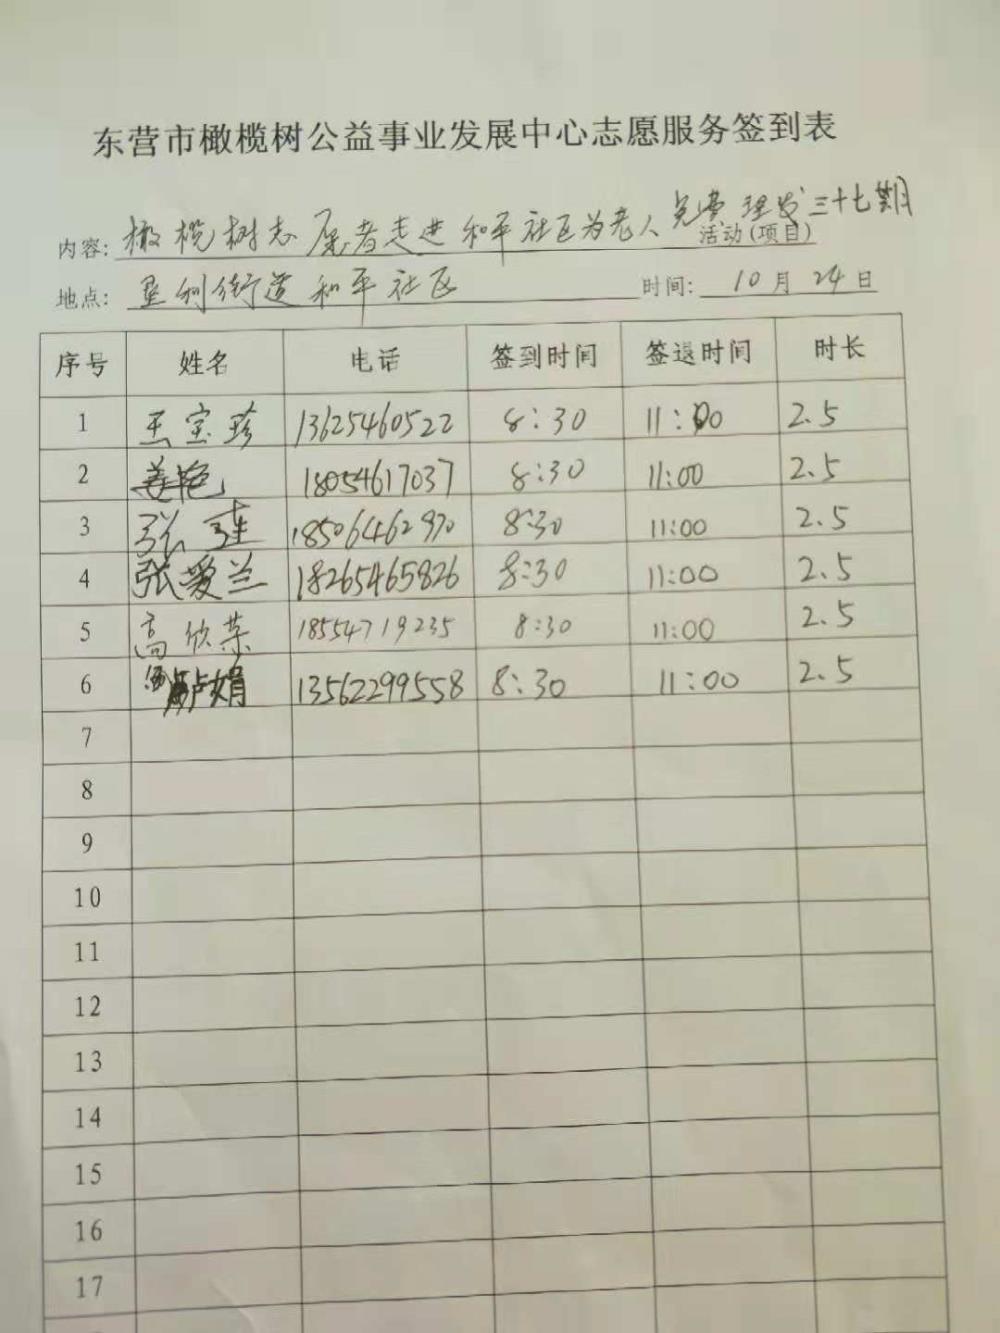 东营市橄榄树公益事业发展中心志愿服务签到表
内容: 橄榄树志愿者走进和平社区为老人免费理发三十七期 活动(项目)
地点: 垦利街道和平社区 时间: 10月24日
序号 姓名 电话 签到时间 签退时间 时长
1 王宝珍 13625460522 8:30 11:00 2.5
2 姜艳 18054617037 8:30 11:00 2.5
3 张 18506462970 8:30 11:00 2.5
4 张爱兰 18265465826 8:30 11:00 2.5
5 高欣荣 18554719235 8:30 11:00 2.5
6 卢娟 13562299558 8:30 11:00 2.5
7
8
9
10
11
12
13
14
15
16
17